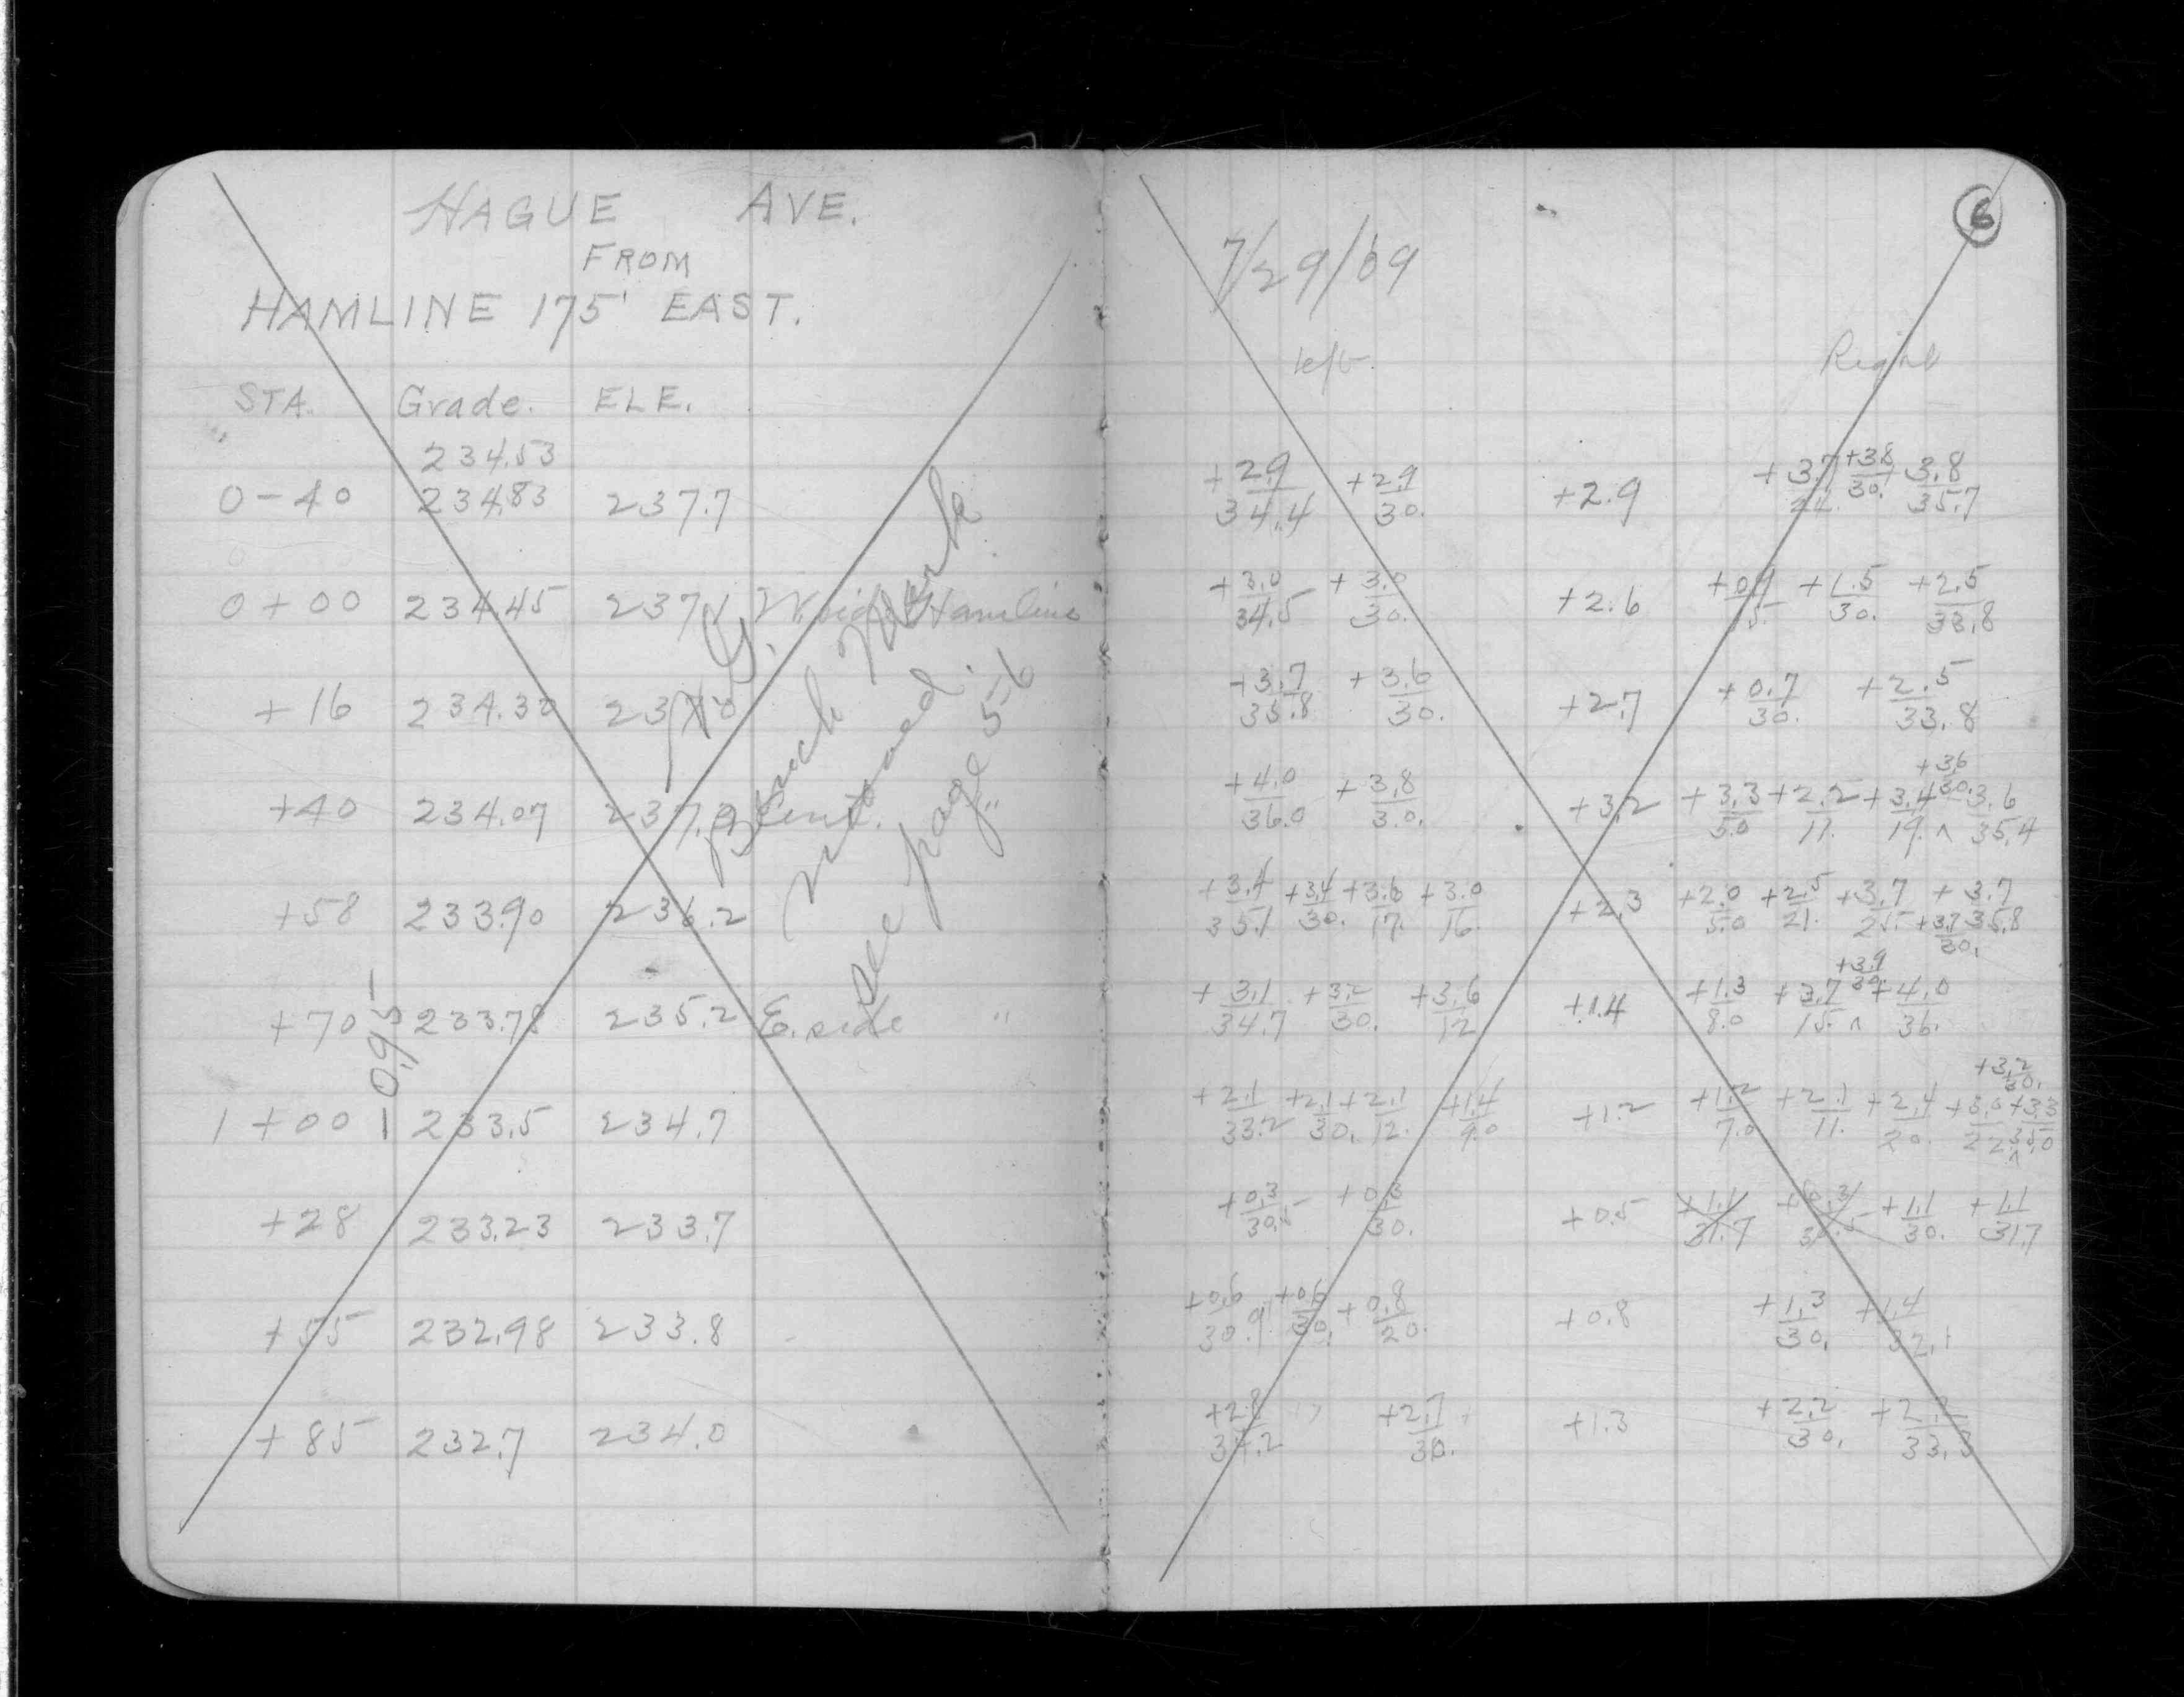 HAGUE AVE.
FROM
HAMLINE 175' EAST.
STA. Grade. ELE.
234.53
0-40 234.83 237.7
0+00 234.45 237.1 W. side Hamline
+16 234.30 237.0
+40 234.07 237.3 Cent. "
+58 233.90 236.2
+70 233.78 235.2 E. side "
1+00 233.5 234.7
+28 233.23 233.7
+55 232.98 233.8
+85 232.7 234.0
0.95
N.G.
Bench Mark
moved.
See page 5-6
6
7/29/69
left Right
+2.9/34.4 +2.9/30. +2.9 +3.7/21. +3.8/30. 3.8/35.7
+3.0/34.5 +3.0/30. +2.6 +0.9/15. +1.5/30. +2.5/33.8
+3.7/35.8 +3.6/30. +2.7 +0.7/30. +2.5/33.8
+4.0/36.0 +3.8/30. +3.2 +3.3/5.0 +2.2/11. +3.4/19. +3.6/30. 3.6/35.4
+3.4/35.1 +3.4/30. +3.6/17. +3.0/16. +2.3 +2.0/5.0 +2.5/21. +3.7/25. +3.7/30. +3.7/35.8
+3.1/34.7 +3.2/30. +3.6/12 +1.4 +1.3/8.0 +3.7/15. +3.9/30. +4.0/36.
+2.1/33.2 +2.1/30. +2.1/12. +1.4/9.0 +1.2 +1.2/7.0 +2.1/11. +2.4/20. +3.0/22 +3.2/30. +3.3/35.0
+0.3/30.5 +0.3/30. +0.5 +1.1/31.7 +0.3/30.5 +1.1/30. +1.1/31.7
+0.6/30.9 +0.6/30. +0.8/20. +0.8 +1.3/30. +1.4/32.1
+2.8/34.2 +2.7/30. +1.3 +2.2/30. +2.2/33.3